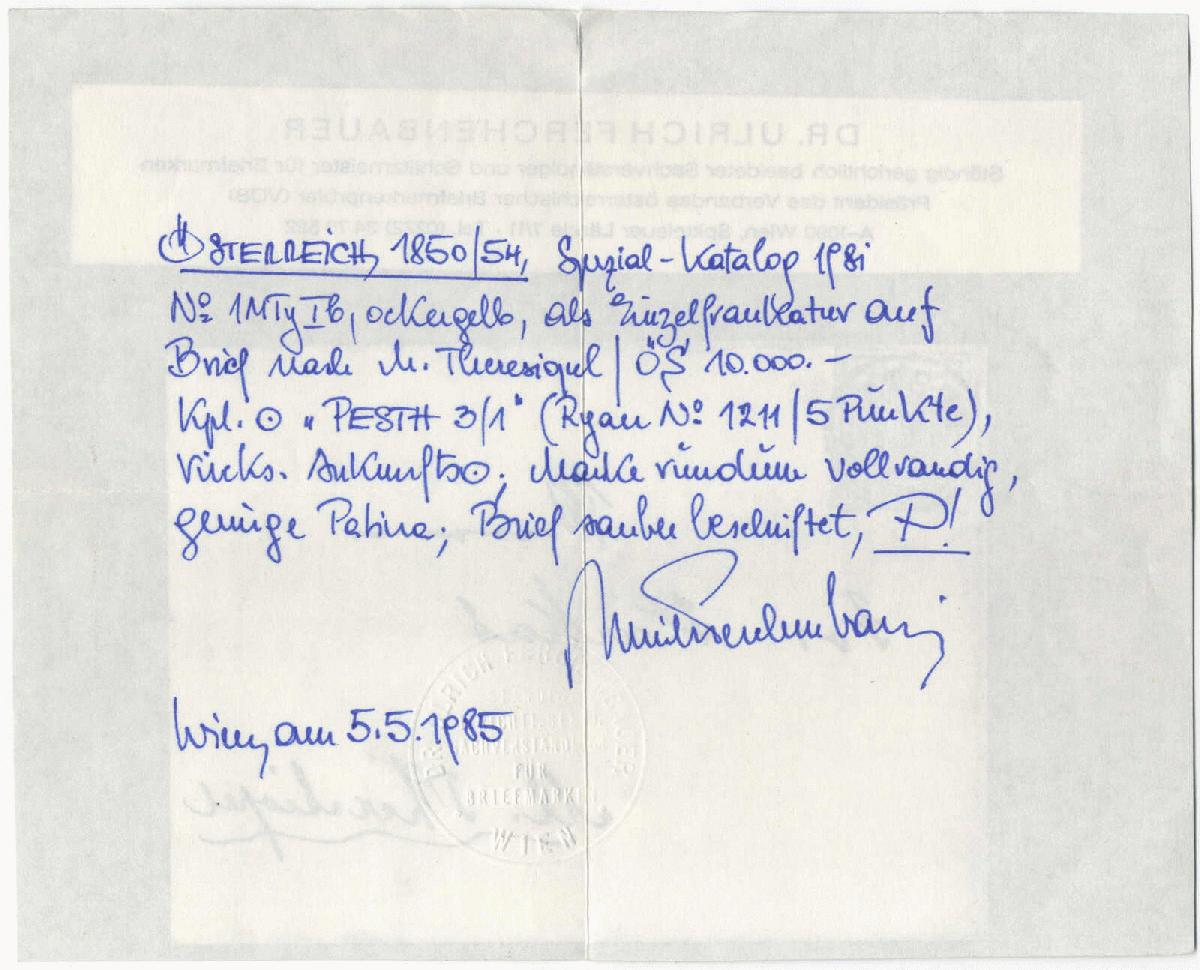 ÖSTERREICH, 1850/54, Spezial-Katalog 1981
No 1MTyIb, ockergelb, als Einzelfrankatur auf
Brief nach M. Theresiopel / ÖS 10.000.–
Kpl. ⊙ "PESTH 3/1" (Ryan No 1211/5 Punkte),
rücks. Ankunfts⊙; Marke rundum vollrandig,
geringe Patina; Brief sauber beschriftet, P!
Wien, am 5.5.1985
DR. ULRICH FERCHENBAUER
Ständig gerichtlich beeideter Sachverständiger und Schätzmeister für Briefmarken
Präsident des Verbandes österreichischer Briefmarkenprüfer (VÖB)
A-1090 Wien, Spittelauer Lände 7/11 - Tel. (0222)
DR. ULRICH
SACHVERSTÄNDIGER
FÜR
BRIEFMARKEN
WIEN